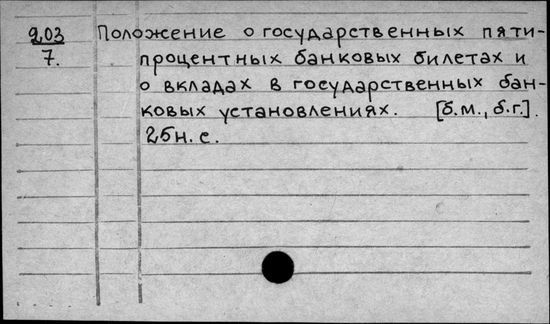 203 Положение о государственных пяти-
7. процентных банковых билетах и
о вкладах в государственных бан-
ковых установлениях. [б.м., б.г.].
25н.с.